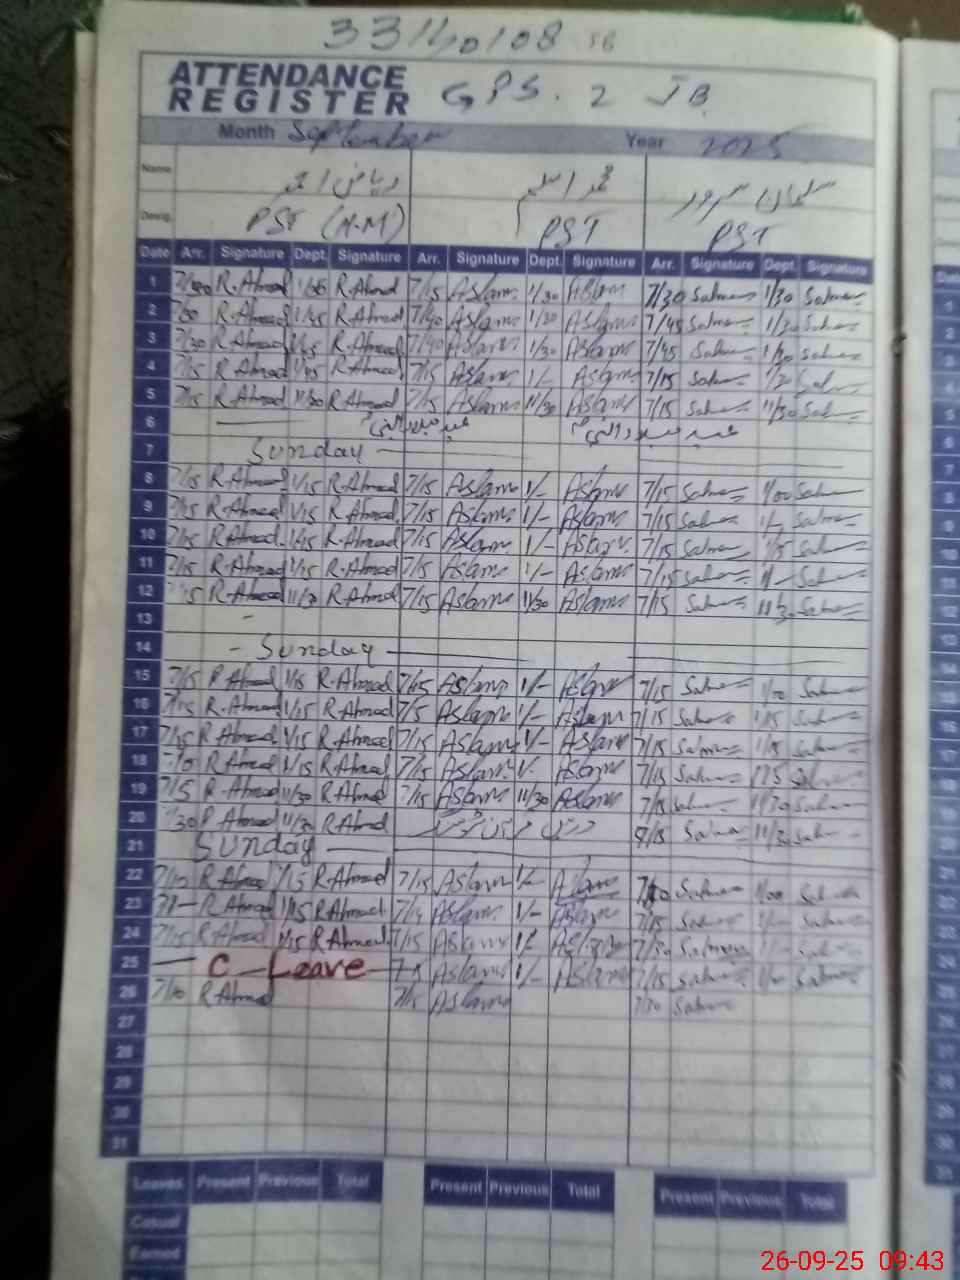 33140108
ATTENDANCE REGISTER GPS. 2 JB
Month September Year 2025
Name ریاض احمد محمد اسلم سلمان سرور
Desig. PST (H.M) PST PST
Date Arr. Signature Dept. Signature Arr. Signature Dept. Signature Arr. Signature Dept. Signature
1 R.Ahmad R.Ahmad 7/15 Aslam 1/30 Aslam 7/30 Salman 1/30 Salman
2 R.Ahmad 1/45 R.Ahmad 7/40 Aslam 1/30 Aslam 7/45 Salman 1/30 Salman
3 7/30 R.Ahmad R.Ahmad 7/40 Aslam 1/30 Aslam 7/45 Salman Salman
4 7/15 R.Ahmad R.Ahmad 7/15 Aslam 1/- Aslam 7/15 Salman Salman
5 7/15 R.Ahmad 11/30 R.Ahmad 7/15 Aslam 11/30 Aslam 7/15 Salman 11/30 Salman
6 عید میلاد النبی عید میلاد النبی
7 Sunday
8 7/15 R.Ahmad 1/15 R.Ahmad 7/15 Aslam 1/- Aslam 7/15 Salman 1/00 Salman
9 7/15 R.Ahmad 1/15 R.Ahmad 7/15 Aslam 1/- Aslam 7/15 Salman Salman
10 7/15 R.Ahmad 1/15 R.Ahmad 7/15 Aslam 1/- Aslam 7/15 Salman 1/15 Salman
11 7/15 R.Ahmad 1/15 R.Ahmad 7/15 Aslam 1/- Aslam 7/15 Salman 1/- Salman
12 7/15 R.Ahmad 11/30 R.Ahmad 7/15 Aslam 11/30 Aslam 7/15 Salman 11/30 Salman
13 -
14 - Sunday
15 7/15 R.Ahmad 1/15 R.Ahmad 7/15 Aslam 1/- Aslam 7/15 Salman 1/00 Salman
16 7/15 R.Ahmad 1/15 R.Ahmad 7/15 Aslam 1/- Aslam 7/15 Salman 1/15 Salman
17 7/15 R.Ahmad 1/15 R.Ahmad 7/15 Aslam 1/- Aslam 7/15 Salman 1/15 Salman
18 7/10 R.Ahmad 1/15 R.Ahmad 7/15 Aslam Aslam 7/15 Salman Salman
19 7/15 R.Ahmad 11/30 R.Ahmad 7/15 Aslam 11/30 Aslam 7/15 Salman 11/30 Salman
20 7/30 R.Ahmad 11/30 R.Ahmad Salman 11/30 Salman
21 Sunday
22 7/10 R.Ahmad 1/15 R.Ahmad 7/15 Aslam 1/- Aslam Salman 1/00 Salman
23 R.Ahmad 1/15 R.Ahmad Aslam 1/- Aslam 7/15 Salman 1/- Salman
24 7/15 R.Ahmad 1/15 R.Ahmad 7/15 Aslam Aslam 7/30 Salman Salman
25 C - Leave Aslam 1/- Aslam 7/15 Salman Salman
26 7/10 R.Ahmad 7/15 Aslam 7/30 Salman
27
28
29
30
31
Leaves Present Previous Total Present Previous Total Present Previous Total
Casual
Earned
26-09-25 09:43